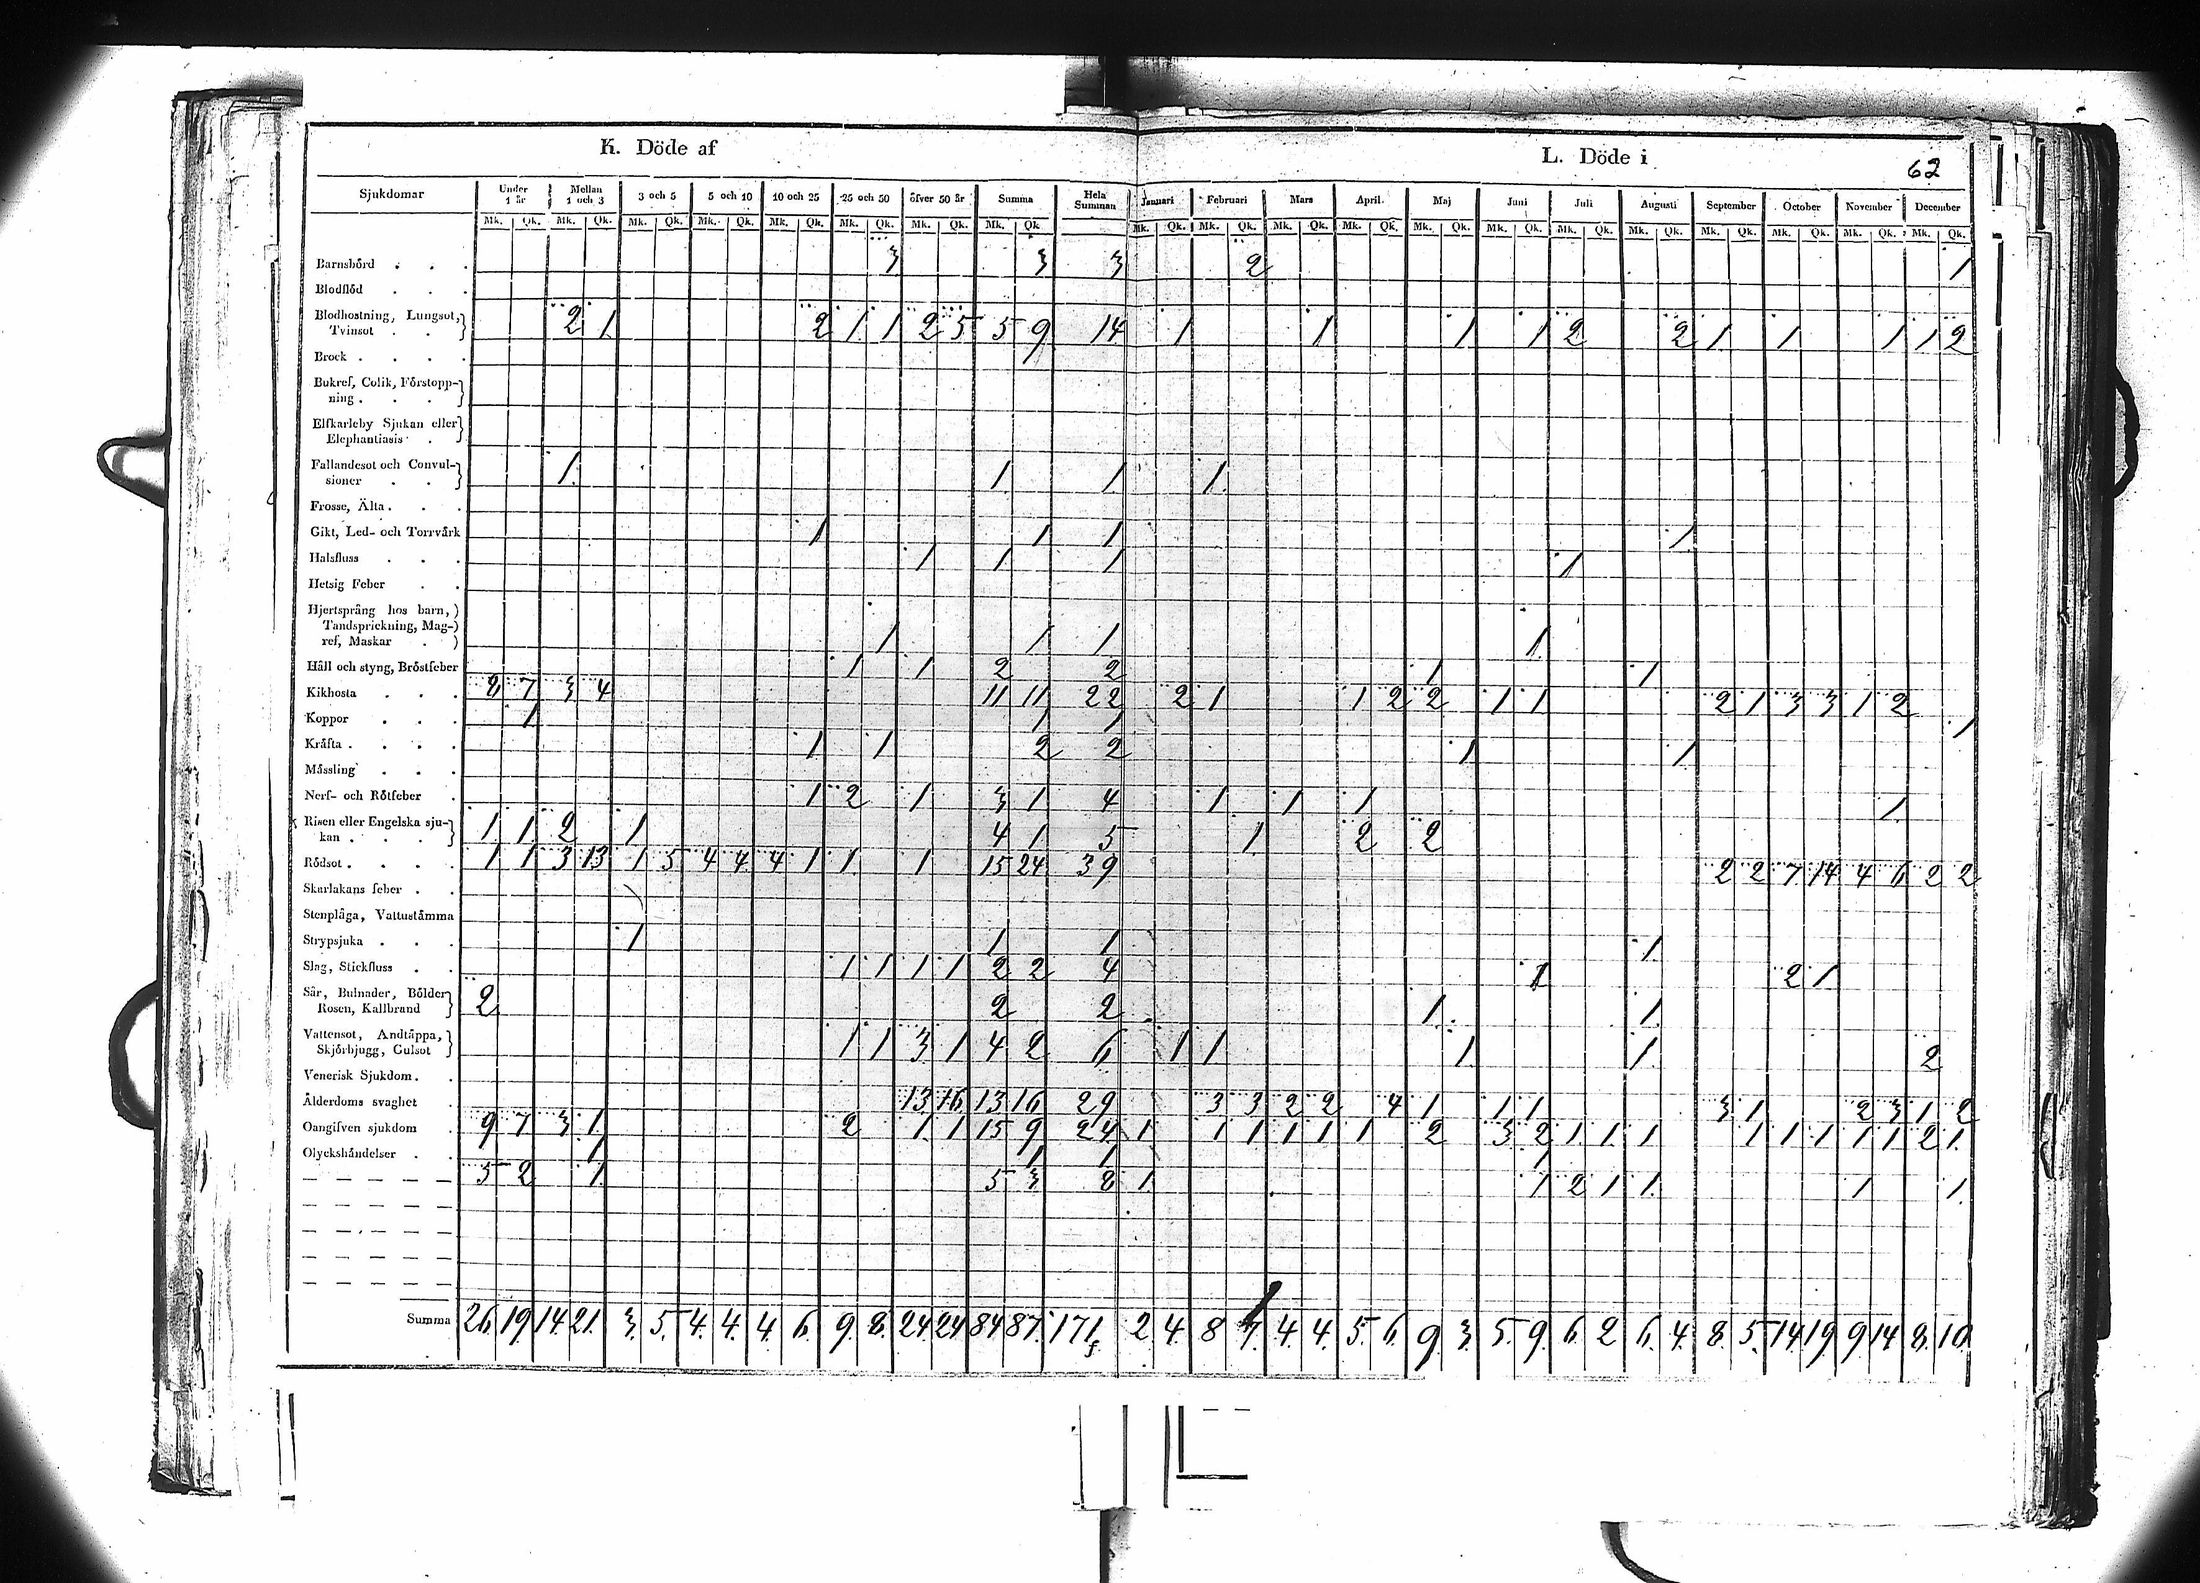 K. Döde af
L. Döde i
62
Sjukdomar Under 1 år Mellan 1 och 3 3 och 5 5 och 10 10 och 25 25 och 50 öfver 50 år Summa Hela Summan Januari Februari Mars April Maj Juni Juli Augusti September October November December
Mk. Qk. Mk. Qk. Mk. Qk. Mk. Qk. Mk. Qk. Mk. Qk. Mk. Qk. Mk. Qk Mk. Qk. Mk. Qk. Mk. Qk. Mk. Qk. Mk. Qk. Mk. Qk. Mk. Qk. Mk. Qk. Mk. Qk. Mk. Qk. Mk. Qk. Mk. Qk.
Barnsbörd . . . 3 3 3 2 1
Blodflöd . . .
Blodhostning, Lungsot,
Tvinsot . . 2 1 2 1 1 2 5 5 9 14 1 1 1 1 2 2 1 1 1 1 2
Brock . . . .
Bukref, Colik, Förstopp-
ning . . .
Elfkarleby Sjukan eller
Elephantiasis .
Fallandesot och Convul-
sioner . . 1 1 1 1
Frosse, Älta . . .
Gikt, Led- och Torrvärk 1 1 1 1
Halsfluss . . . 1 1 1 1
Hetsig Feber . .
Hjertsprång hos barn,
Tandsprickning, Mag-
ref, Maskar . 1 1 1 1
Håll och styng, Bröstfeber 1 1 2 2 1 1
Kikhosta . . . 8 7 3 4 11 11 22 2 1 1 2 2 1 1 2 1 3 3 1 2
Koppor . . . 1 1 1 1
Kräfta . . . . 1 1 2 2 1 1
Måssling . . .
Nerf- och Rötfeber . 1 2 1 3 1 4 1 1 1 1
Risen eller Engelska sju-
kan . . . 1 1 2 1 4 1 5 1 2 2
Rödsot . . . . 1 1 3 13 1 5 4 4 4 1 1 1 15 24 39 2 2 7 14 4 6 2 2
Skarlakans feber . .
Stenplåga, Vattustämma
Strypsjuka . . . 1 1 1 1
Slag, Stickfluss . . 1 1 1 1 2 2 4 1 2 1
Sår, Bulnader, Bölder
Rosen, Kallbrand 2 2 2 1 1
Vattensot, Andtäppa,
Skjörbjugg, Gulsot 1 1 3 1 4 2 6 1 1 1 1 2
Venerisk Sjukdom . .
Ålderdoms svaghet . 13 16 13 16 29 3 3 2 2 4 1 1 1 3 1 2 3 1 2
Oangifven sjukdom . 9 7 3 1 2 1 1 15 9 24 1 1 1 1 1 1 2 3 2 1 1 1 1 1 1 1 1 2 1
Olyckshändelser . . 1 1 1 1
5 2 1 5 3 8 1 1 2 1 1 1 1
Summa 26 19 14 21 3 5 4 4 4 6 9 8 24 24 84 87 171 2 4 8 7 4 4 5 6 9 3 5 9 6 2 6 4 8 5 14 19 9 14 8 10